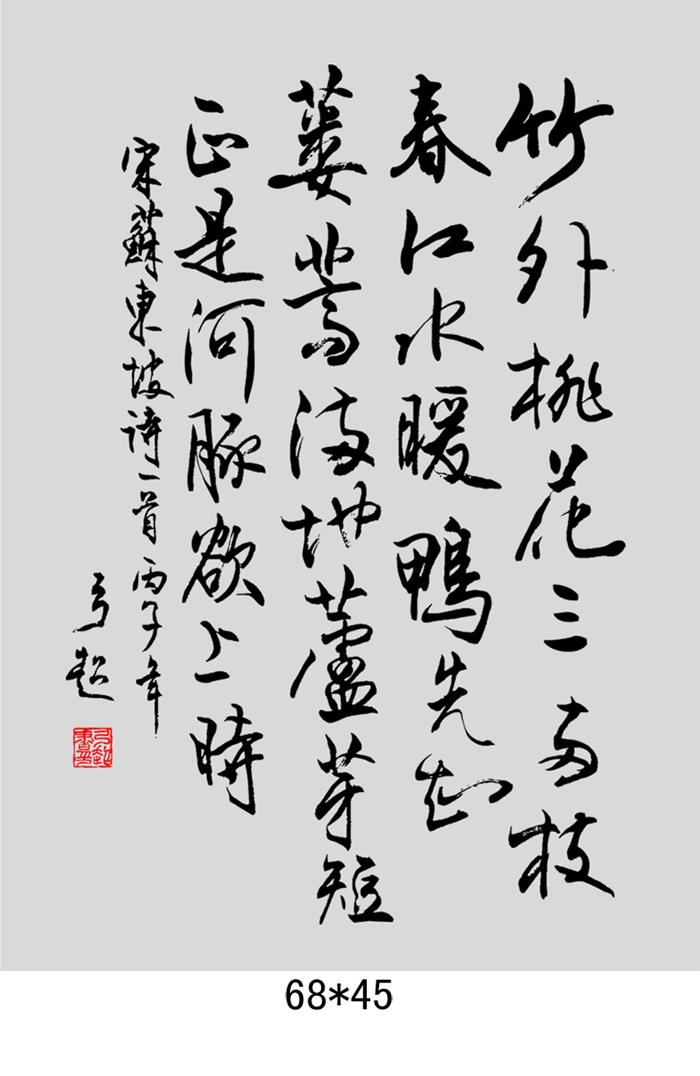 竹外桃花三两枝
春江水暖鸭先知
蒌蒿满地蘆芽短
正是河豚欲上時
宋蘇東坡诗一首丙子年
弓超
68*45